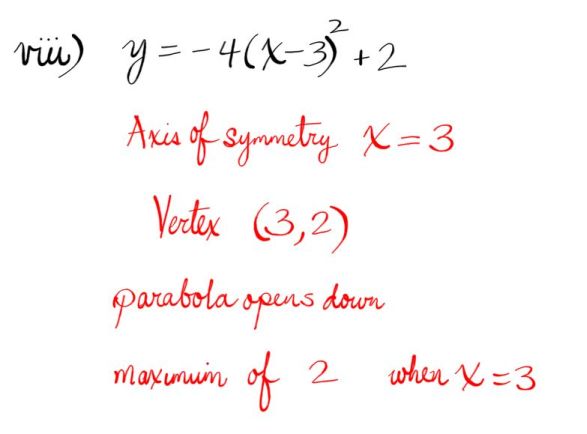 viii) y = -4(x-3)² + 2
Axis of symmetry x = 3
Vertex (3,2)
parabola opens down
maximum of 2 when x = 3